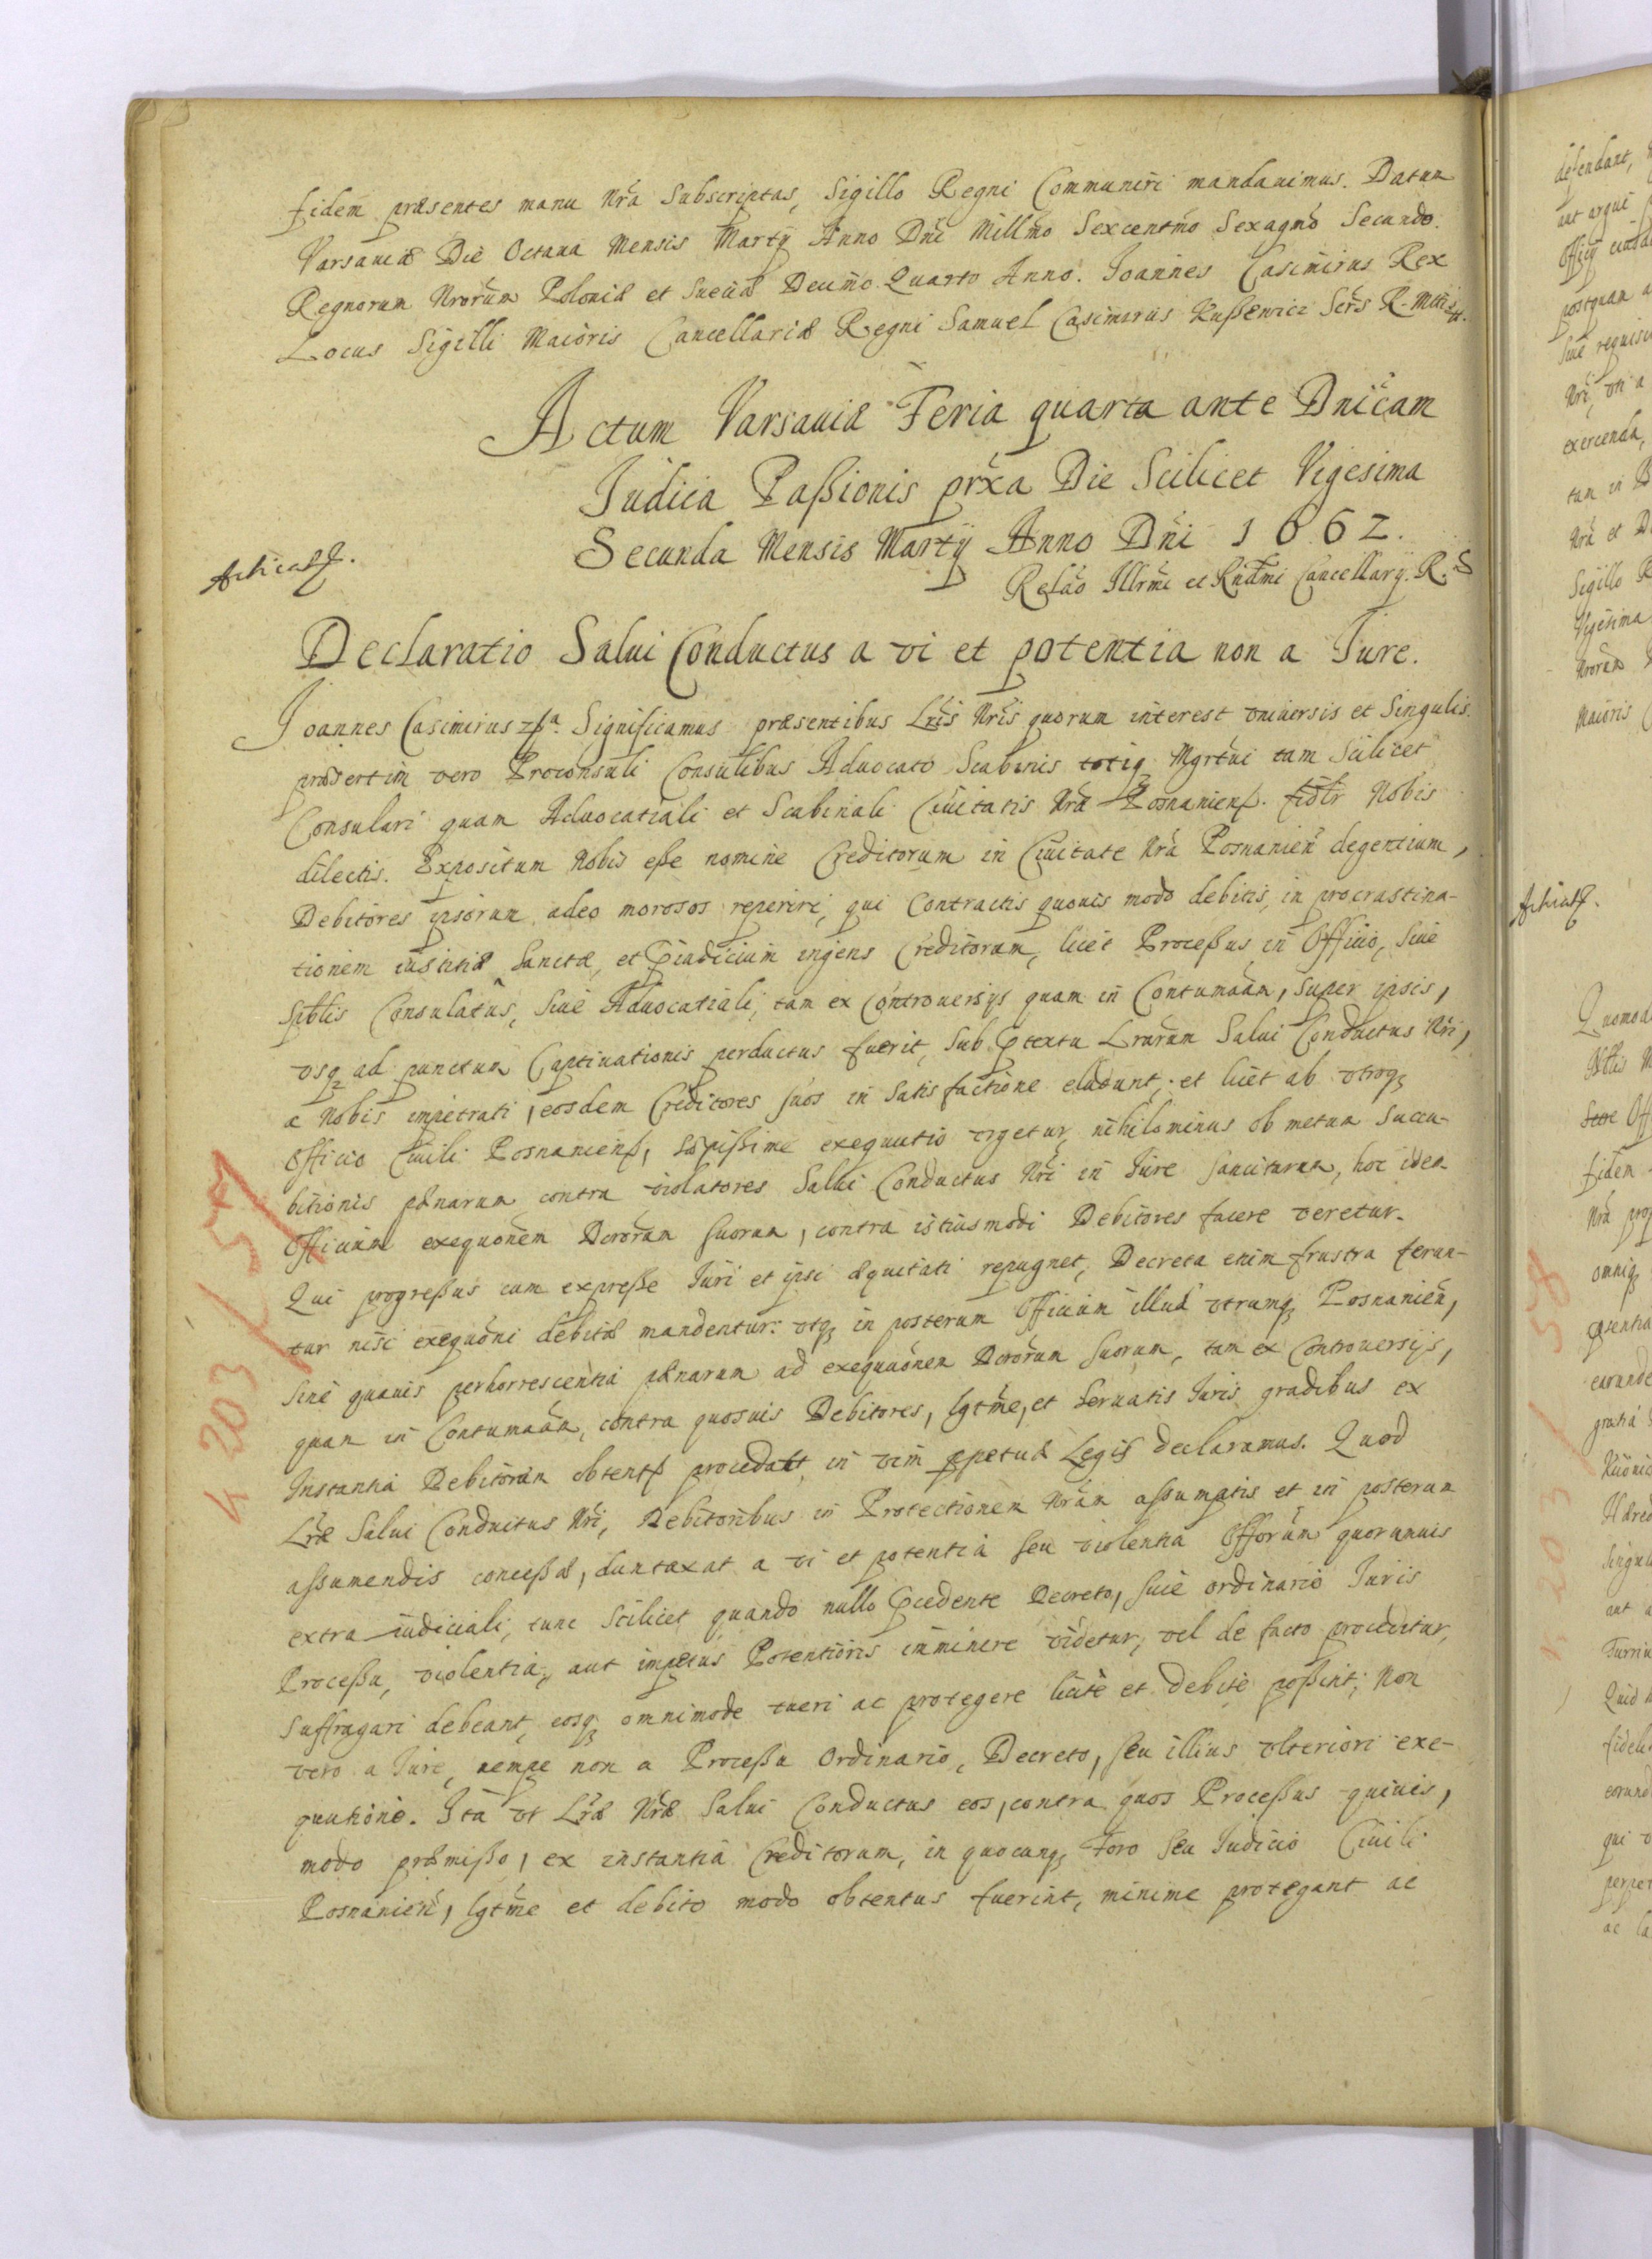 fidem præsentes manu Nrã Subscriptas, Sigillo Regni Communiri mandauimus. Datum
Varsauiæ Die Octaua Mensis Martÿ Anno Dni Millmo Sexcentmo Sexagmo Secundo.
Regnorum Nrorum Poloniæ et Sueciæ Decimo Quarto Anno. Joannes Casimirus Rex
Locus Sigilli Maioris Cancellariæ Regni Samuel Casimirus Kußewicz Sers R. Mttis
Actum Varsauiæ Feria quarta ante Dnicam
Judica Paßionis prxa Die Scilicet Vigesima
Secunda Mensis Martÿ Anno Dni 1662.
Relao Illrmi et Rndmi Cancellarÿ. R.
Declaratio Salui Conductus a vi et potentia non a Jure.
Joannes Casimirus Significamus præsentibus Lris Nris quorum interest vniuersis et Singulis
præsertim vero Proconsuli Consulibus Aduocato Scabinis totiq Mgrtui tam Scilicet
Consulari quam Aduocatiali et Scabinali Ciuitatis Nræ Posnaniens. fidlr Nobis
dilectis. Expositum Nobis eße nomine Creditorum in Ciuitate Nra Posnanien degentium,
Debitores ipsorum adeo morosos reperiri, qui Contractis quouis modo debitis, in procrastina-
tionem iustitiæ Sanctæ, et pjudicium ingens Creditorum, licet Proceßus in Officio, Siue
Spblis Consulatus, Siue Aduocatiali, tam ex Controuersÿs quam in Contumaam, Super ipsis,
vsq ad punctum Captiuationis perductus fuerit, Sub ptextu Lrarum Salui Conductus Nri,
a Nobis impetrati, eosdem Creditores suos in Satisfactione eludunt, et licet ab vtroq
Officio Ciuili Posnaniens, sæpißime exequutio vrgetur, nihilominus ob metum Succu-
bitionis pænarum contra violatores Salui Conductus Nri in Jure sancitarum, hoc idem
Officium exequonem Dcrorum suorum, contra istiusmodi Debitores facere veretur.
Qui progreßus cum expreße Juri et ipsi æquitati repugnet, Decreta enim frustra ferun-
tur nisi exequoni debitæ mandentur: vtq in posterum Officium illud vtrumq Posnanien,
Sine quauis perhorrescentia pænarum ad exequuonem Dcrorum suorum, tam ex Controuersÿs,
quam in Contumaam, contra quosuis Debitores, lgtme, et Seruatis Juris gradibus ex
Instantia Debitorum obtents procedatt in vim ppetuæ Legis declaramus. Quod
Lræ Salui Conductus Nri, Debitoribus in Protectionem Nram aßumptis et in posterum
aßumendis conceßæ, duntaxat a vi et potentia seu violentia Offorum quorumuis
extra iudiciali, tunc Scilicet quando nullo pcedente Decreto, siue ordinario Juris
Proceßu, violentia, aut impetus Potentioris imminere videtur, vel de facto proceditur,
Suffragari debeant, eosq omnimode tueri ac protegere licite et debite poßint; Non
vero a Jure, nempe non a Proceßu Ordinario, Decreto, seu illius vlteriori exe-
quutione. Ita vt Lræ Nræ Salui Conductus eos, contra quos Proceßus quiuis,
modo præmißo, ex instantia Creditorum, in quocunq Foro Seu Judicio Ciuili
Posnanien, lgtme et debito modo obtentus fuerint, minime protegant ac